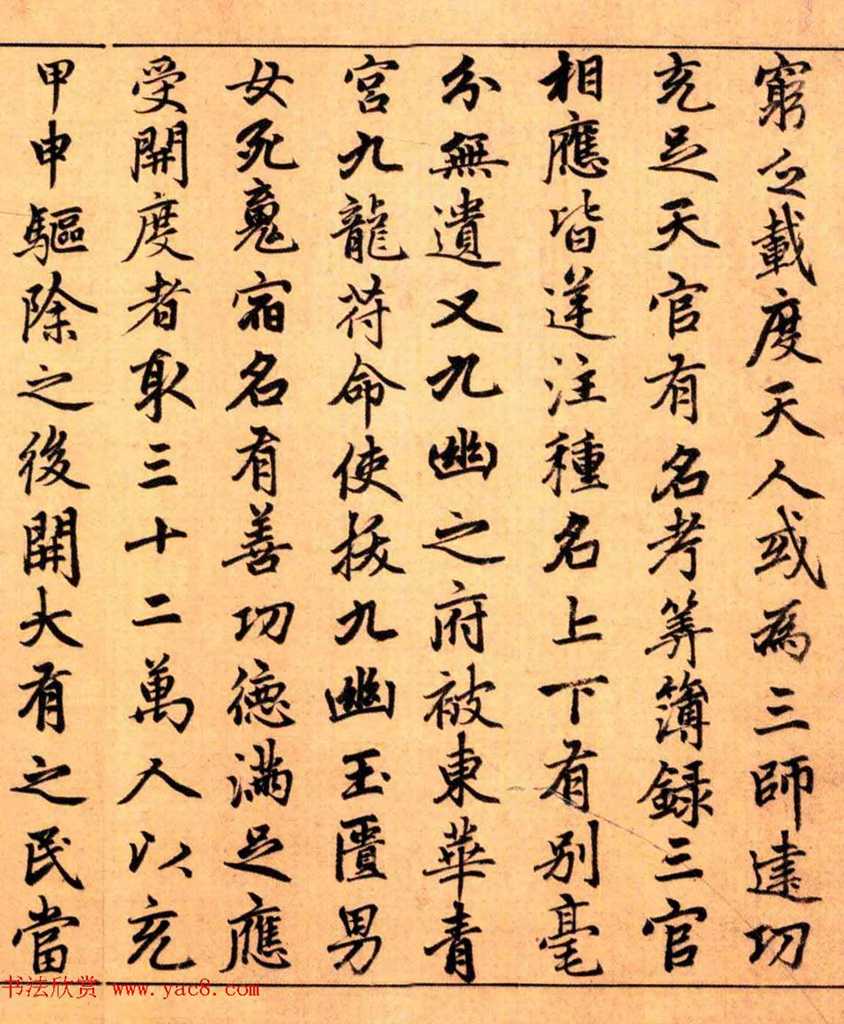 窮之載度天人或為三師建功
充足天官有名考筭簿録三官
相應皆逆注種名上下有別毫
分無遺又九幽之府被東華青
宮九龍符命使拔九幽玉匱男
女死魂宿名有善功德滿足應
受開度者取三十二萬人以充
甲申驅除之後開大有之民當
书法欣赏 www.yac8.com